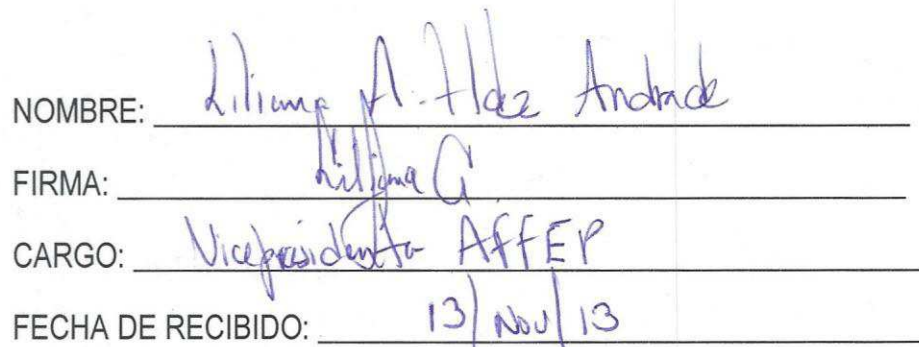 NOMBRE: Liliana A. Hdez Andrade
FIRMA: Liliana
CARGO: Vicepresidenta AFFEP
FECHA DE RECIBIDO: 13/Nov/13